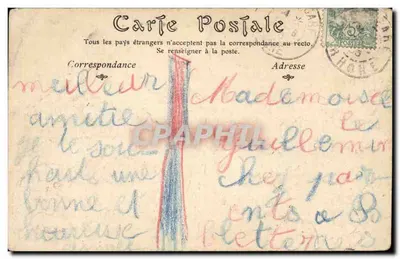 Carte Postale
Tous les pays étrangers n'acceptent pas la correspondance au recto
Se renseigner à la poste.
Correspondance
Adresse
RHONE
CPARAMA
meilleur
amitie
je te soui
haite une
bonne et
heureuse
Mademoise
lle
Guillemin
chez par
ents a B
letterens